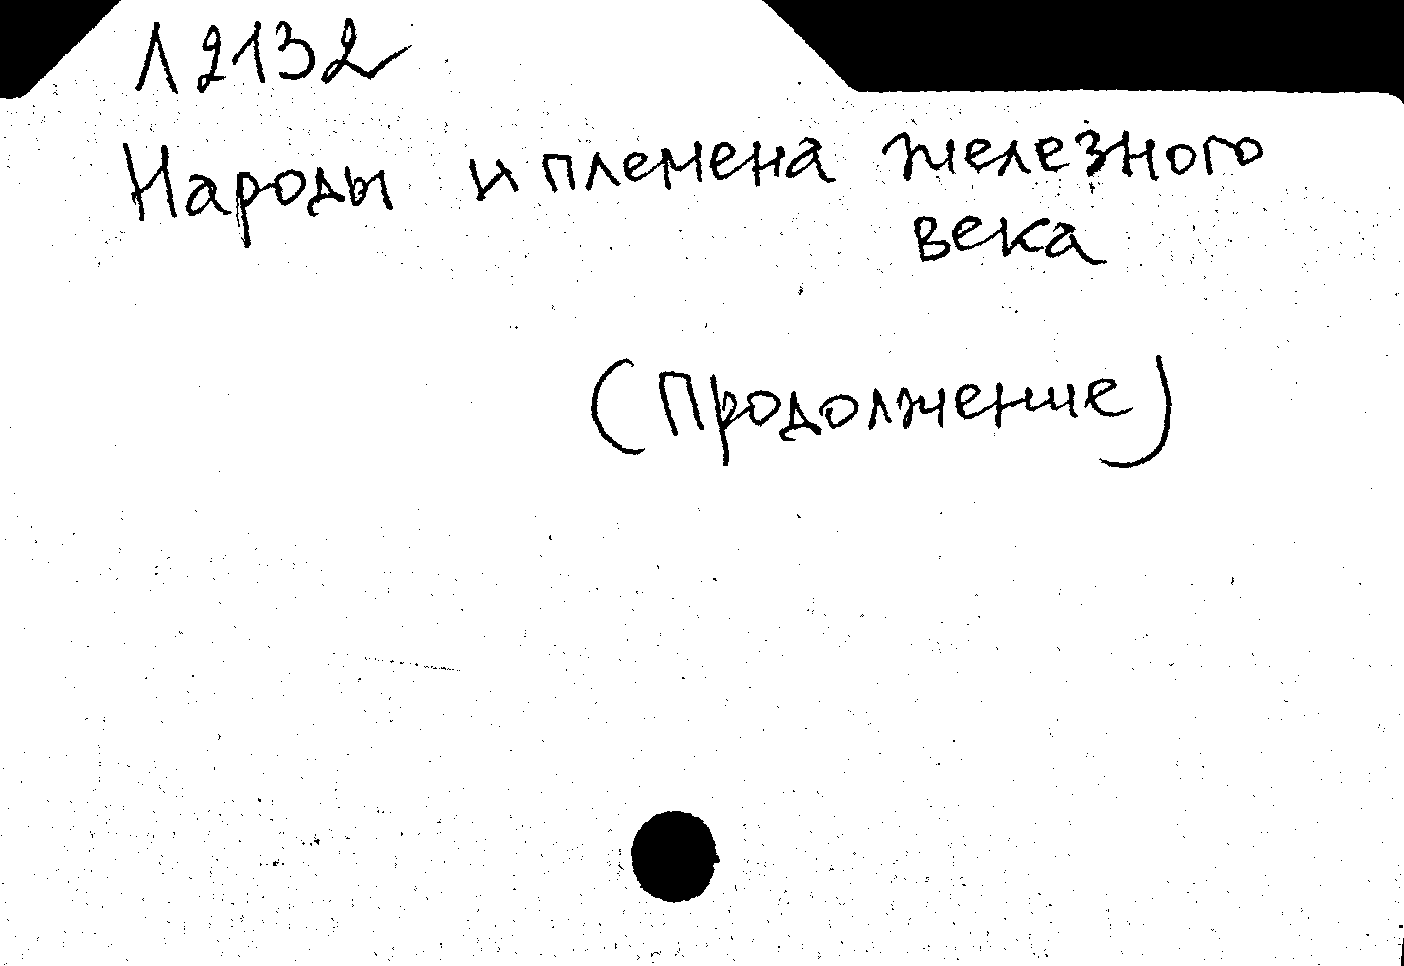 Л2132
Народы и племена железного
века
(Продолжение)